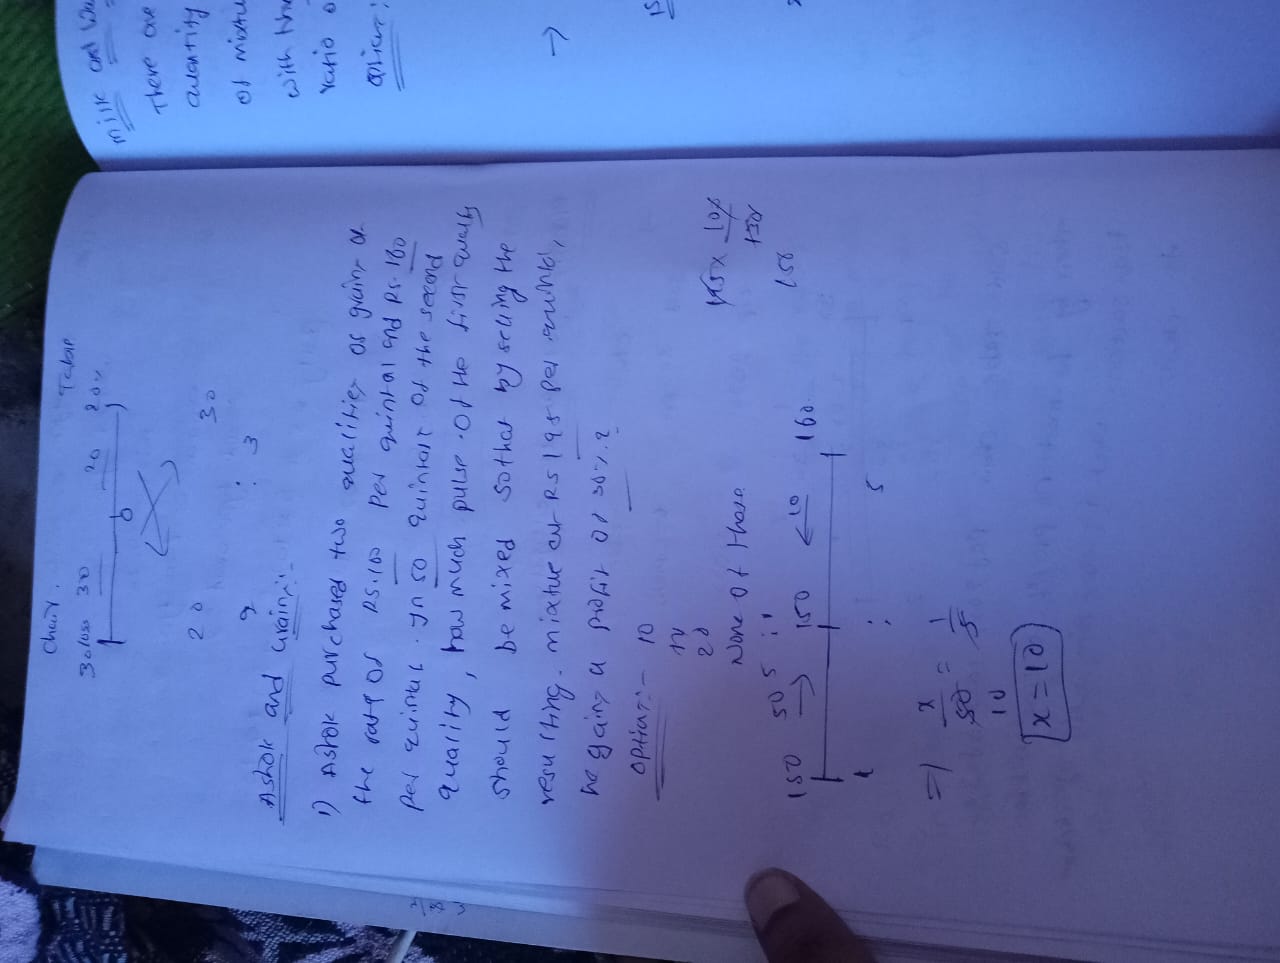 Chair. Table
30 loss 30 20 20%
0
20 30
2 : 3
Ashok and Grain:-
1) Ashok purchased two qualities of grain at
the rate of RS.100 per quintal and RS.160
per quintal. In 50 quintals of the second
quality, how much pulse of the first quality
should be mixed so that by selling the
resulting mixture at RS 195 per quintal,
he gains a profit of 30%?
option:- 10
20
None of these
195 x 100
130
150
50 5 : 1
150 10 160
: 5
=> x/50 = 1/5
10
x = 10
milk and
There are
quantity
of mixtu
with the
ratio o
option:
→
15